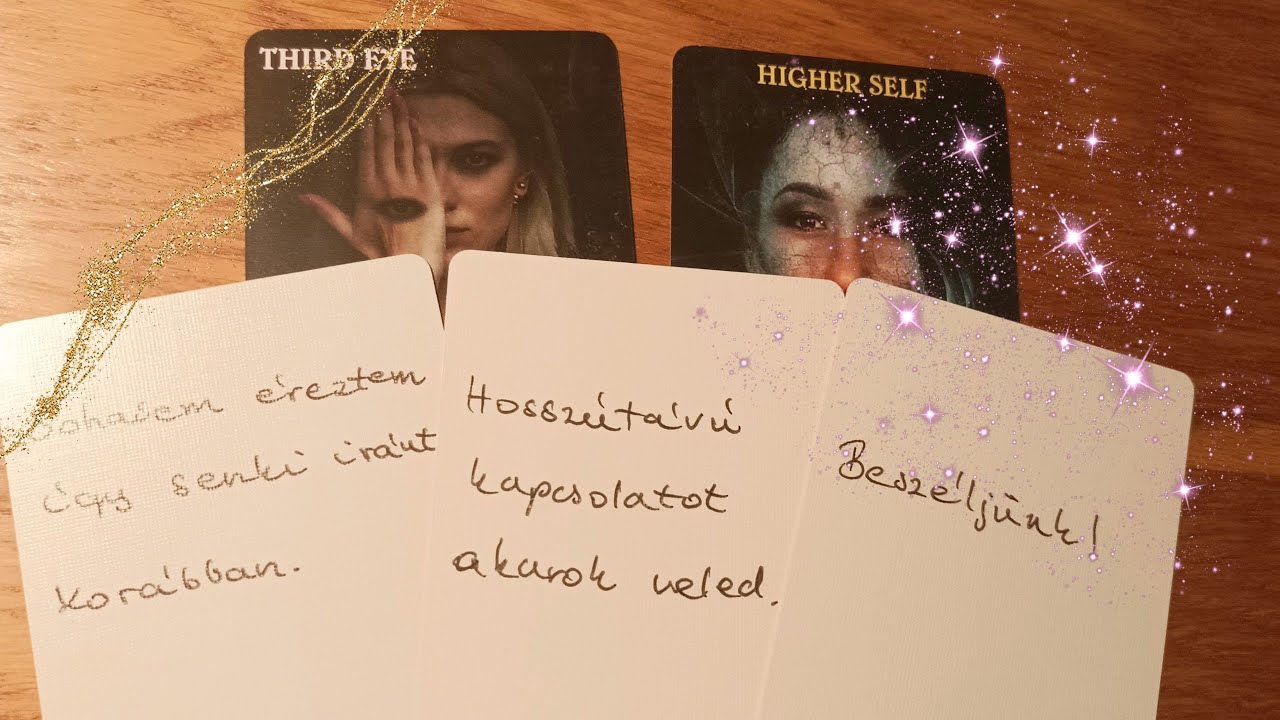 THIRD EYE
HIGHER SELF
Sohasem éreztem
így senki iránt
korábban.
Hosszútávú
kapcsolatot
akarok veled.
Beszéljünk!